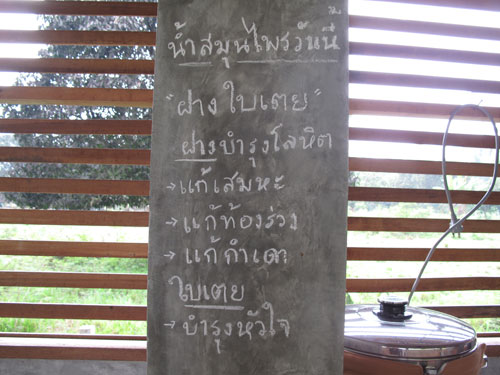 น้ำสมุนไพรวันนี้
"ฝางใบเตย"
ฝางบำรุงโลหิต
→แก้เสมหะ
→แก้ท้องร่วง
→แก้กำเดา
ใบเตย
→บำรุงหัวใจ